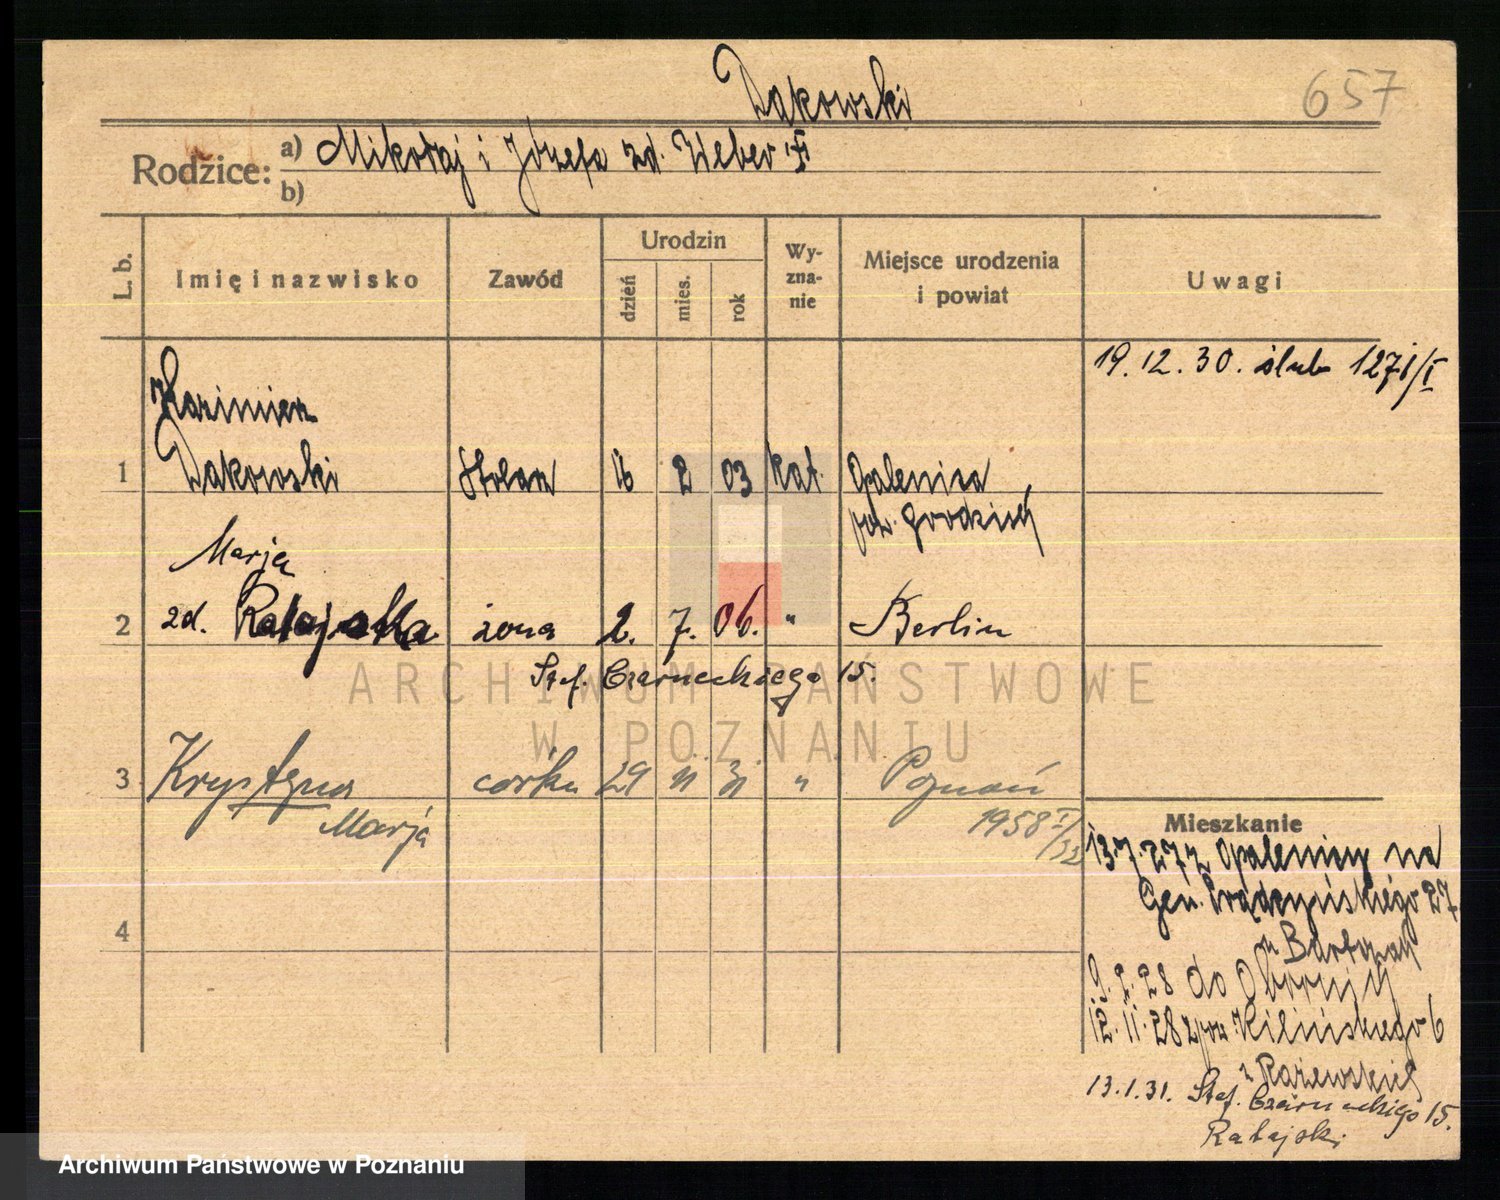 Dakowski
657
Rodzice: a) Mikołaj i Józefa zd. Weber
b)
L. b.
Imię i nazwisko
Zawód
Urodzin
dzień
mies.
rok
Wy-
zna-
nie
Miejsce urodzenia
i powiat
Uwagi
19. 12. 30. ślub 1271/I
Kazimierz
1 Dakowski Stolarz 16 2 03 kat. Opalenica
pow. Grodzisk
Marja
2 zd. żona 2. 7. 06. " Berlin
Stef. Czarneckiego 15.
3 Krystyna córka 29 11 31 " Poznań
Marja 1958 I/32
4
Mieszkanie
13.7.27 z Opalenicy na
Gen. Prądzyńskiego 27
9.2.28 do Obornik
12.11.28 Kilińskiego 6
13.1.31. Stef. Czarneckiego 15.
Ratajski
ARCHIWUM PAŃSTWOWE
W POZNANIU
Archiwum Państwowe w Poznaniu